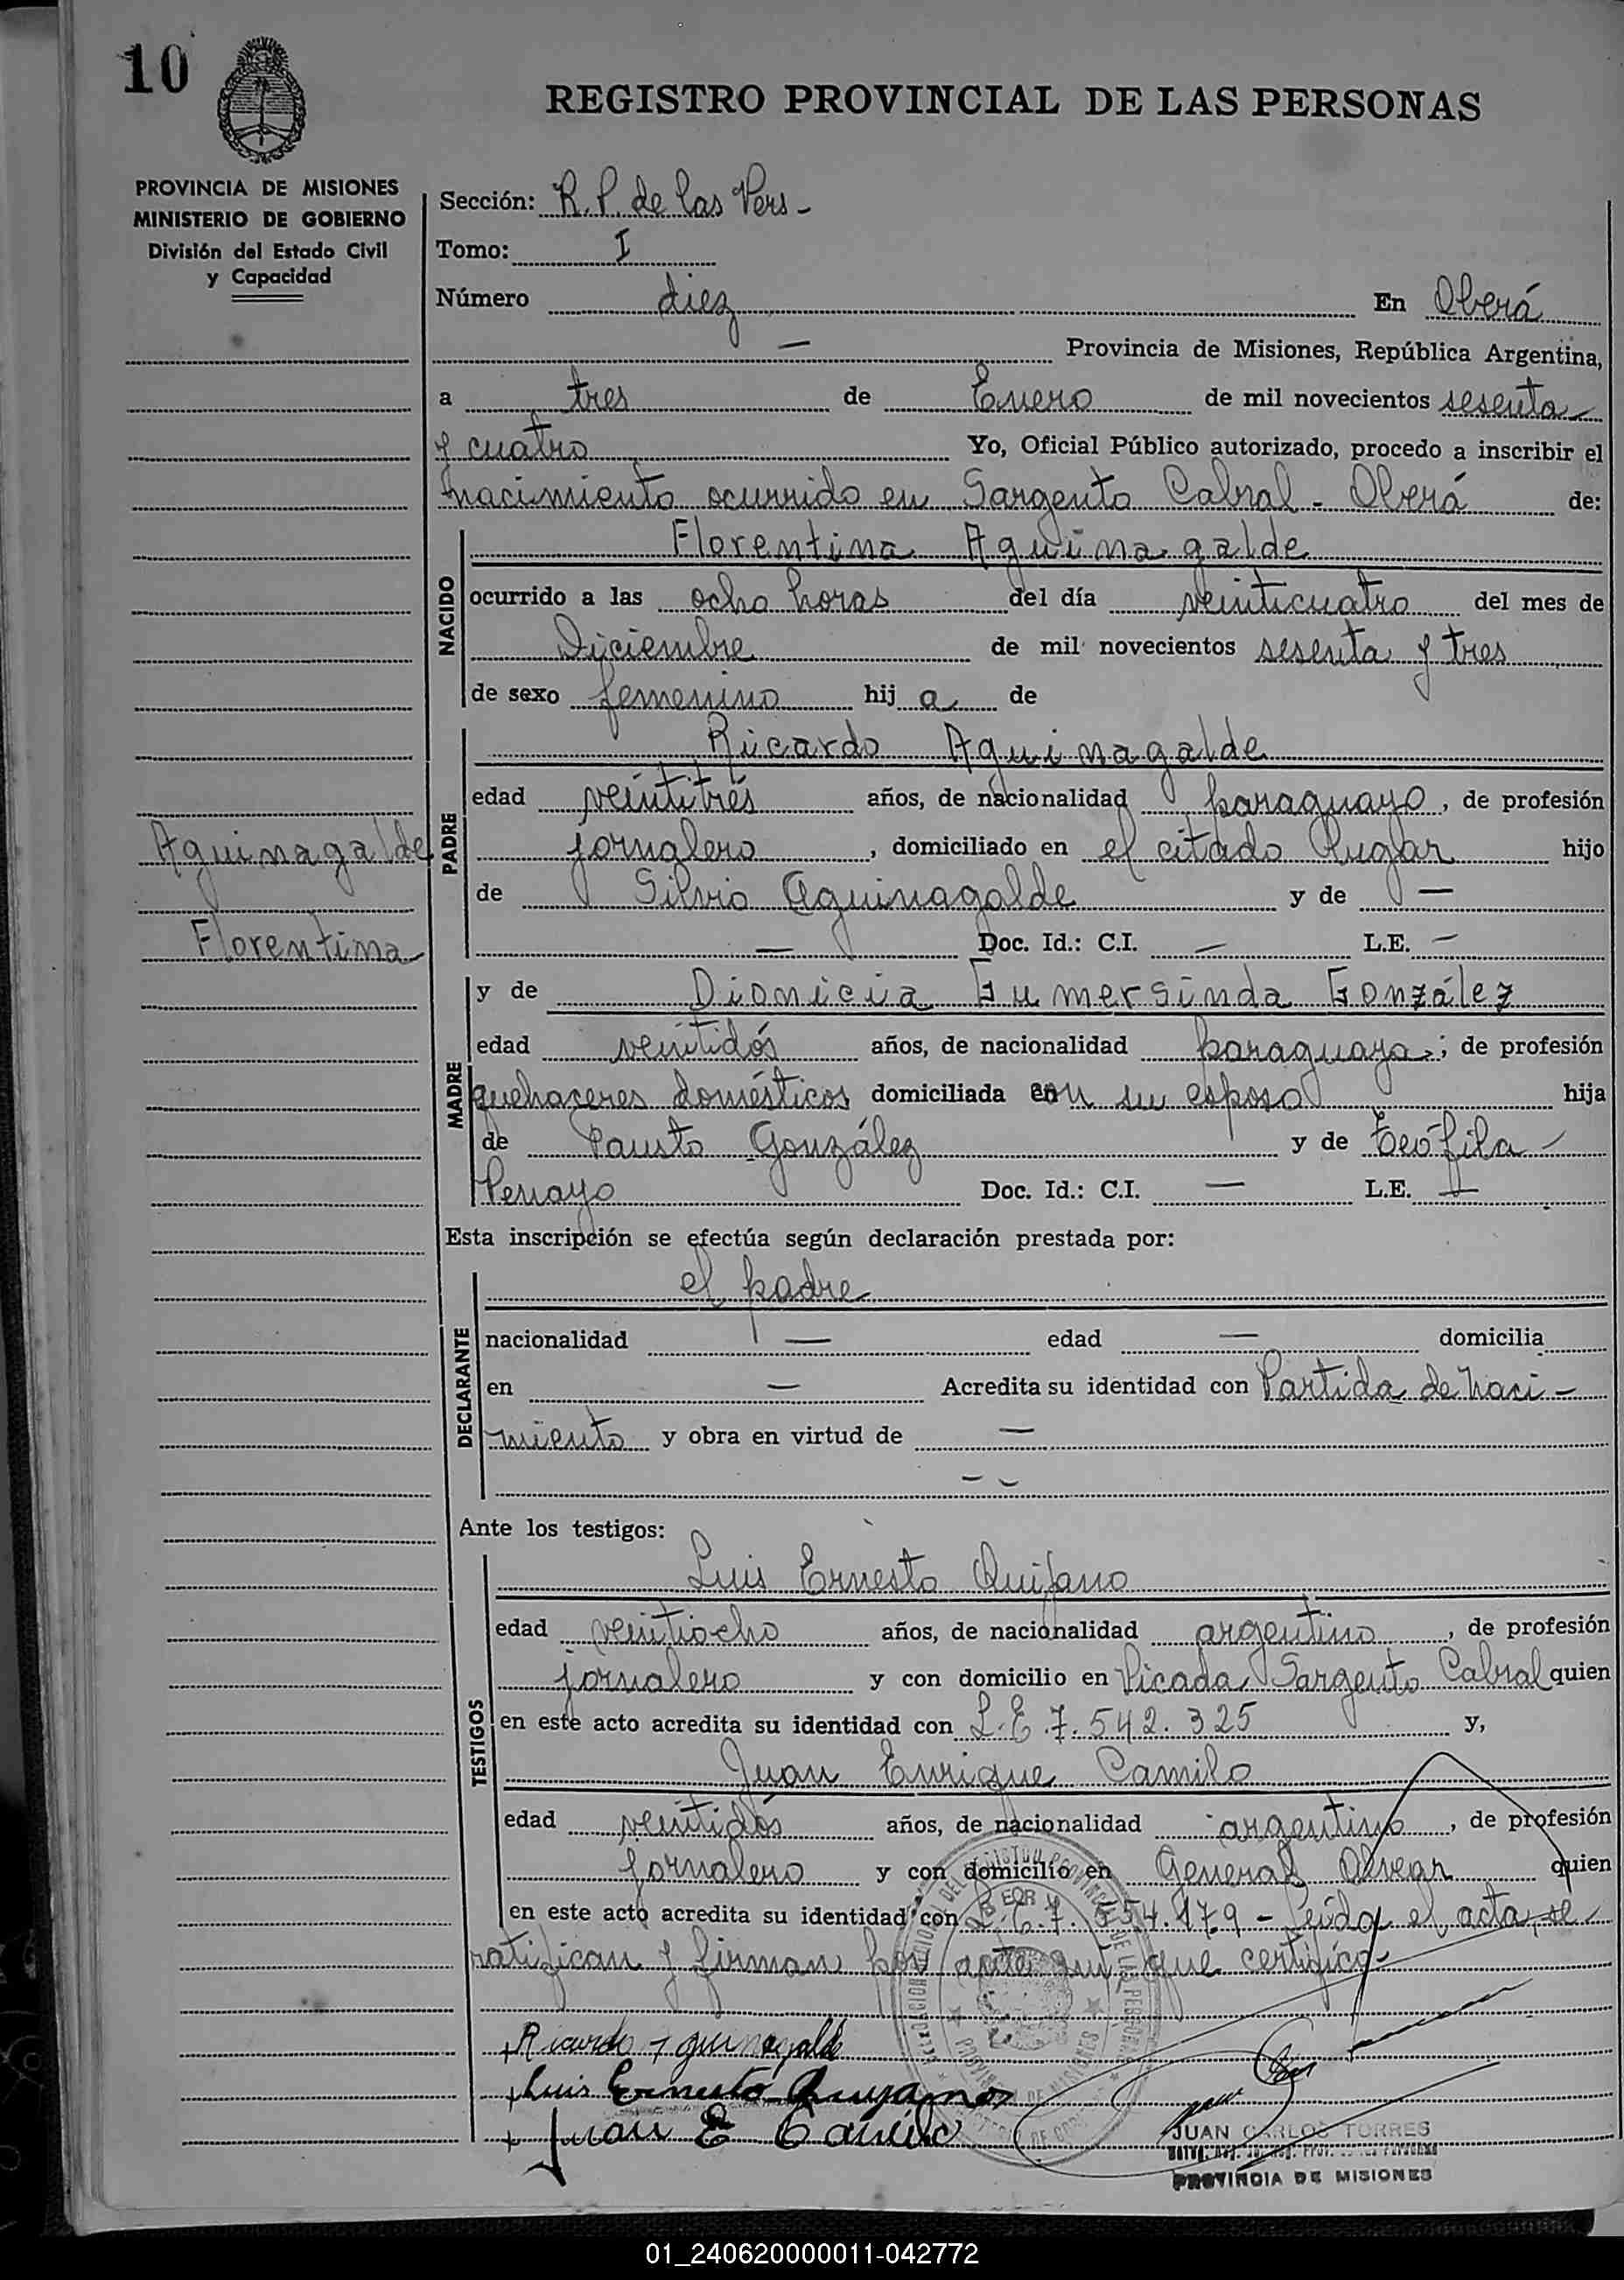 10
REGISTRO PROVINCIAL DE LAS PERSONAS
PROVINCIA DE MISIONES
MINISTERIO DE GOBIERNO
División del Estado Civil
y Capacidad
Sección: R. P. de las Pers -
Tomo: I
Número diez En Oberá
— Provincia de Misiones, República Argentina,
a tres de Enero de mil novecientos sesenta
y cuatro Yo, Oficial Público autorizado, procedo a inscribir el
nacimiento ocurrido en Sargento Cabral - Oberá de:
NACIDO
Florentina Aguinagalde
ocurrido a las ocho horas del día veinticuatro del mes de
Diciembre de mil novecientos sesenta y tres
de sexo femenino hij a de
PADRE
Ricardo Aguinagalde
edad veintitrés años, de nacionalidad paraguayo, de profesión
jornalero, domiciliado en el citado lugar hijo
de Silvio Aguinagalde y de —
— Doc. Id.: C.I. — L.E. —
Aguinagalde
Florentina
MADRE
y de Dionicia Gumersinda González
edad veintidós años, de nacionalidad paraguaya, de profesión
quehaceres domésticos domiciliada con su esposo hija
de Fausto González y de Teófila -
Penayo Doc. Id.: C.I. — L.E. —
Esta inscripción se efectúa según declaración prestada por:
DECLARANTE
el padre
nacionalidad — edad — domicilia
en — Acredita su identidad con Partida de naci -
miento y obra en virtud de —
- -
Ante los testigos:
TESTIGOS
Luis Ernesto Quijano
edad veintiocho años, de nacionalidad argentino, de profesión
jornalero y con domicilio en Picada Sargento Cabral quien
en este acto acredita su identidad con L. E. 7. 542. 325 y,
Juan Enrique Camilo
edad veintidós años, de nacionalidad argentino, de profesión
jornalero y con domicilio en General Alvear quien
en este acto acredita su identidad con L. E. 7. 554. 179 - Leída el acta, se
ratifican y firman por ante mí, que certifico -
Ricardo Aguinagalde
Luis Ernesto Quijano
Juan E Camilo
JUAN CARLOS TORRES
PROVINCIA DE MISIONES
01_240620000011-042772